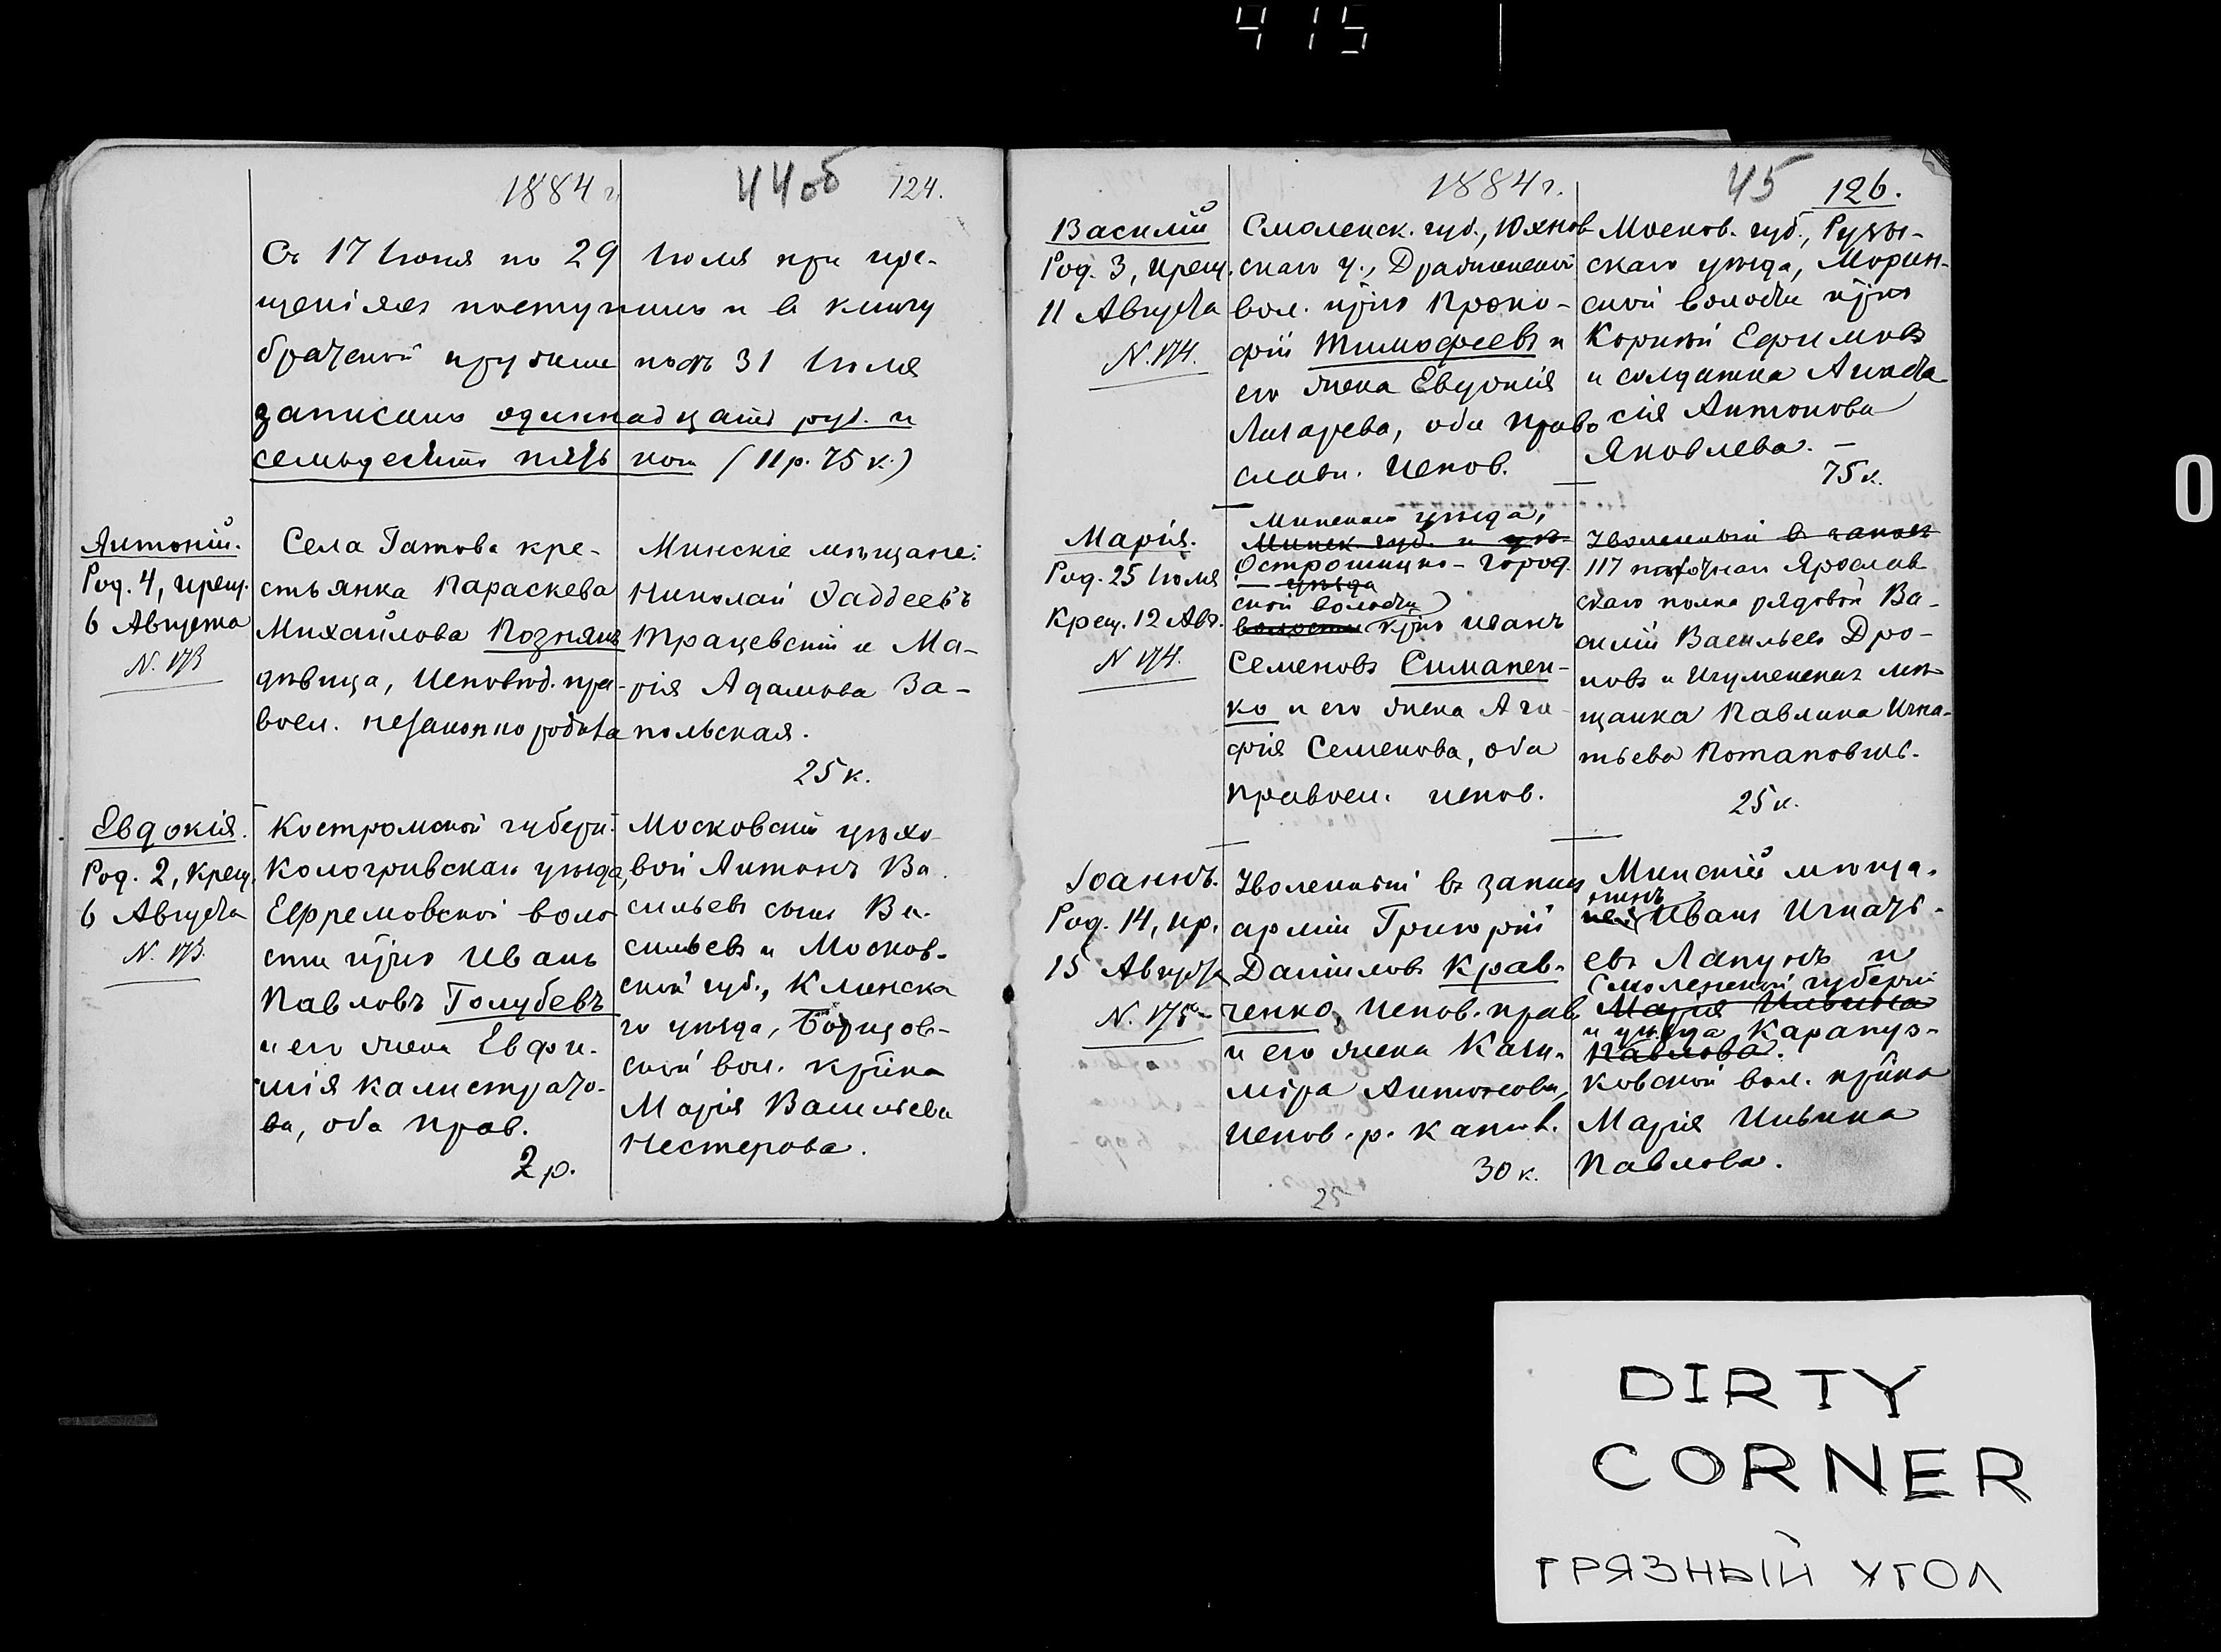 415
1884 г. 44об 124.
Съ 17 Іюня по 29 Іюля при кре-
щеніяхъ поступило и въ книгу
братской кружки подъ 31 Іюля
записано одиннадцать руб. и
семьдесятъ пять коп (11 р. 75 к.)
Антоній.
Род. 4, крещ.
6 Августа
N. 173
Села Гатова кре-
стьянка Параскева
Михайлова Познякъ
дѣвица, Исповѣд. пра-
восл. незаконно родила
Минскіе мѣщане:
Николай Ѳаддеевъ
Трацевскій и Ма-
рія Адамова За-
польская.
25 к.
Евдокія.
Род. 2, крещ.
6 Августа
N. 173.
Костромской губерн.
Кологривскаго уѣзда,
Ефремовской воло
сти кр-нъ Иванъ
Павловъ Голубевъ
и его жена Евфи-
мія Калистрато-
ва, оба прав.
2 р.
Московскій цѣхо-
вой Антонъ Ва
сильевъ сынъ Ва-
сильевъ и Москов-
ской губ., Клинска
го уѣзда,
ской вол. кр-нка
Марія Васильева
Нестерова.
1884 г. 45 126.
Василій
Род. 3, крещ.
11 Августа
N. 174.
Смоленск. губ., Юхнов
скаго у.,
вол. кр-нъ Проко-
фій Тимофеевъ и
его жена Евдокія
Лазарева, оба право
славн. испов.
Москов. губ., Рузы-
скаго уѣзда, Морин-
ской волости кр-нъ
Корнѣй Ефимовъ
и солдатка Анаста
сія Антонова
Яковлева. —
75 к.
Марія.
Род. 25 Іюля
Крещ. 12 Авг.
N 174.
Минскаго уѣзда,
Минск. губ. и уѣз
Острошицко-город
уѣзда
ской волости
волости кр-нъ Иванъ
Семеновъ Симанен-
ко и его жена Ага
фія Семенова, оба
правосл. испов.
Уволенный въ запасъ
117 пѣхотнаго Ярослав
скаго полка рядовой Ва-
силій Васильевъ Дро-
новъ и Игуменская мѣ-
щанка Павлина Игна-
тьева Потаповичъ.
25 к.
Іоаннъ.
Род. 14, кр.
15 Августа
N. 175
Уволенный въ запасъ
арміи Григорій
Даниловъ Крав-
ченко, испов. прав
и его жена Кази-
міра Антонова,
испов. р. катол.
30 к.
25
Минскій мѣща-
нинъ
Иванъ Игнать-
евъ Лапукъ и
Смоленской губерніи
Марія Ильина
и уѣзда Карапуз-
Павлова.
ковской вол. кр-нка
Марія Ильина
Павлова.
0
DIRTY
CORNER
ГРЯЗНЫЙ УГОЛ